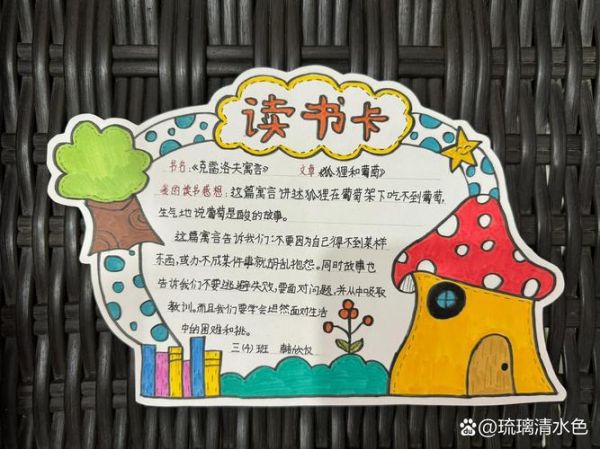 读书卡
书名:《克雷洛夫寓言》 文章《狐狸和葡萄》
我的读书感想:这篇寓言讲述狐狸在葡萄架下吃不到葡萄,
生气地说葡萄是酸的故事。
这篇寓言告诉我们:不要因为自己得不到某样
东西,或办不成某件事就胡乱抱怨。同时故事也
告诉我们不要逃避失败,要面对问题,并从中吸取
教训。而且我们要学会坦然面对生活
中的困难和挑。
三(4)班
@琉璃清水色